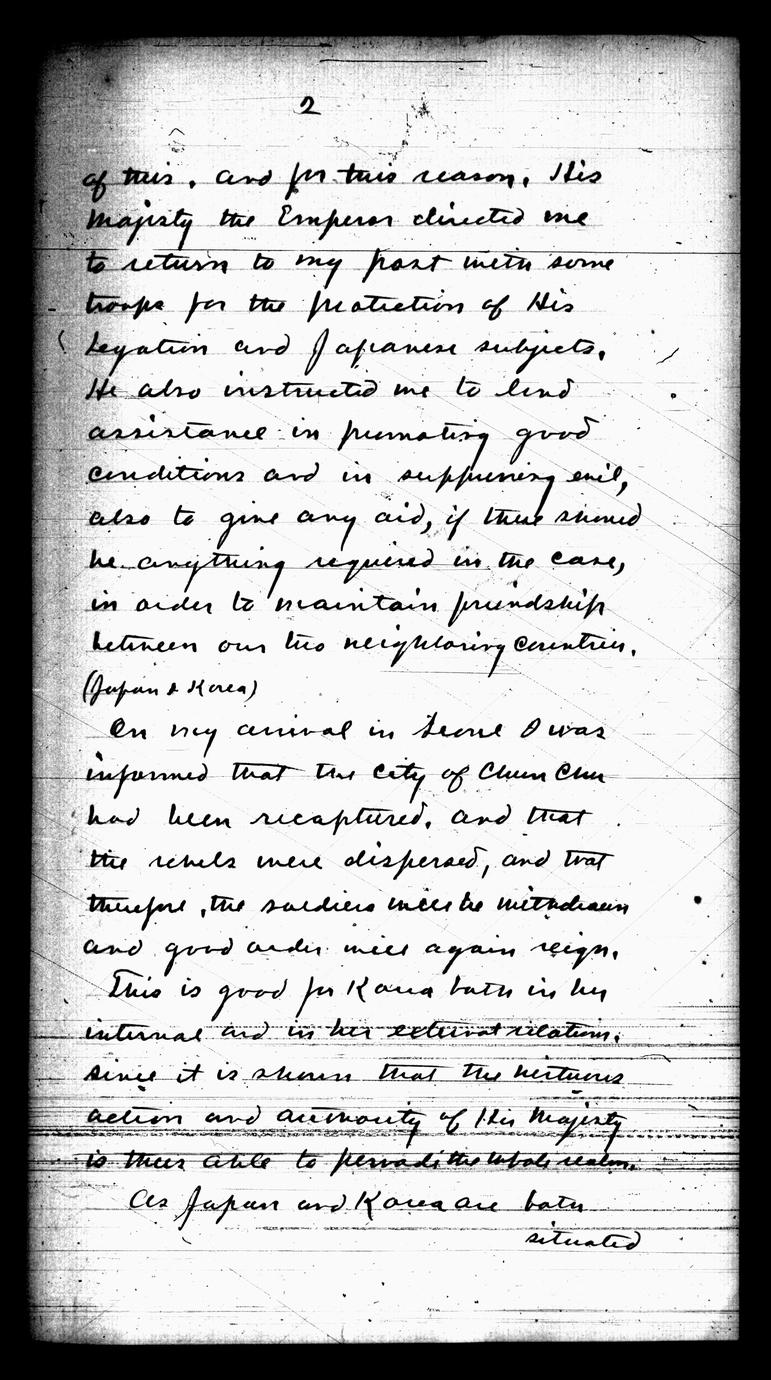 2
of this, and for this reason, His
Majesty the Emperor directed me
to return to my post with some
troops for the protection of His
Legation and Japanese subjects.
He also instructed me to lend
assistance in promoting good
conditions and in suppressing evil,
also to give any aid, if there should
be anything required in the case,
in order to maintain friendship
between our two neighboring countries.
(Japan & Korea)
On my arrival in Seoul I was
informed that the city of Chun Chu
had been recaptured, and that
the rebels were dispersed, and that
therefore, the soldiers will be withdrawn
and good order will again reign.
This is good for Korea both in her
internal and in her external relations.
since it is shown that the virtuous
action and authority of His Majesty
is thus able to pervade the whole realm.
As Japan and Korea are both
situated